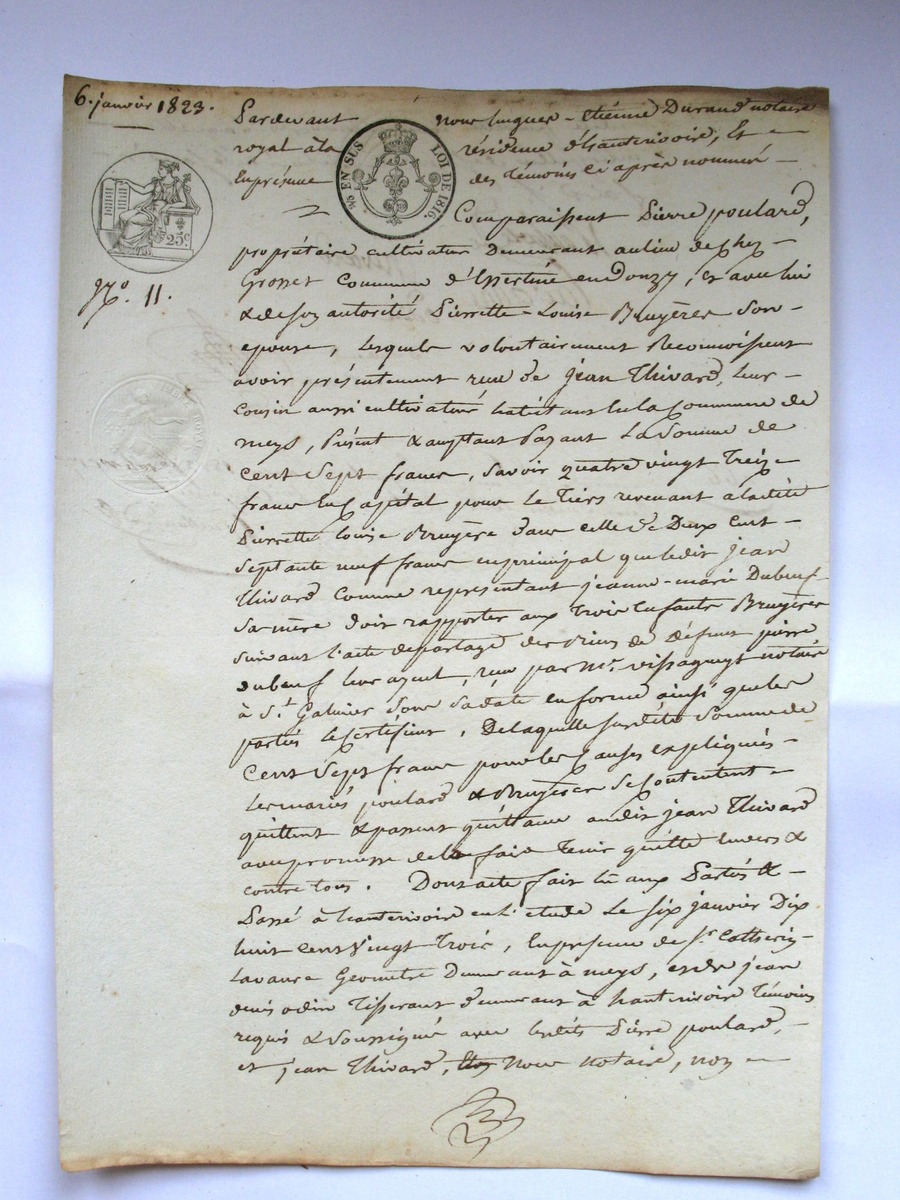 6. janvier 1823.
Pardevant nous hugues-Etiénne Durand notaire
royal à la résidence d'hauterivoire, Et
En présence des Témoins ci après nommés
25 EN SUS LOI DE 1816
25c
Comparaissent Pierre poulard,
propriétaire cultivateur Demeurant au lieu de Chez
N.º 11.
Grosset Commune d'Essertine en donzy, et avec lui
& de son autorité Pierrette-Louise Bruyères Son
epouse, Lesquels volontairement Reconnoissent
avoir présentement reçu de jean Thivard, leur
cousin aussi cultivateur habitant en la Commune de
meys, Présent & acceptant Payant La Somme de
Cent Sept francs, Savoir quatre vingt Treize
francs En Capital pour le tiers revenant à ladite
Pierrette louise Bruyère dans celle de Deux Cent
Septante neuf francs en principal que ledit jean
Thivard Comme représentant jeanne-marie Dubeuf
Sa mère doit rapporter aux Trois Enfants Bruyères
Suivant l'acte de partage des Biens de défunt pierre
dubeuf leur ayeul, reçu par M.e notaire
à S.t Galmier Sous Sa date en forme ainsi que les
parties le Certifient, De laquelle Susdite Somme de
Cent Sept francs pour les Causes expliquées
Les mariés poulard & Bruyères Se Contentent
quittent & passent quittance audit jean Thivard
avec promesse de le faire Tenir quitte Envers &
contre tous. Dont acte fait lu aux Parties &
Passé à hauterivoire en l'etude Le Six janvier Dix
huit cent Vingt Trois, En présence de S.r Catherin
Lavaure Géomètre Demeurant à meys, et de jean
denis odin Tisserant demeurant à hauterivoire Témoins
requis & Soussignés avec lesdits Pierre poulard,
et jean Thivard, Nous notaire, non